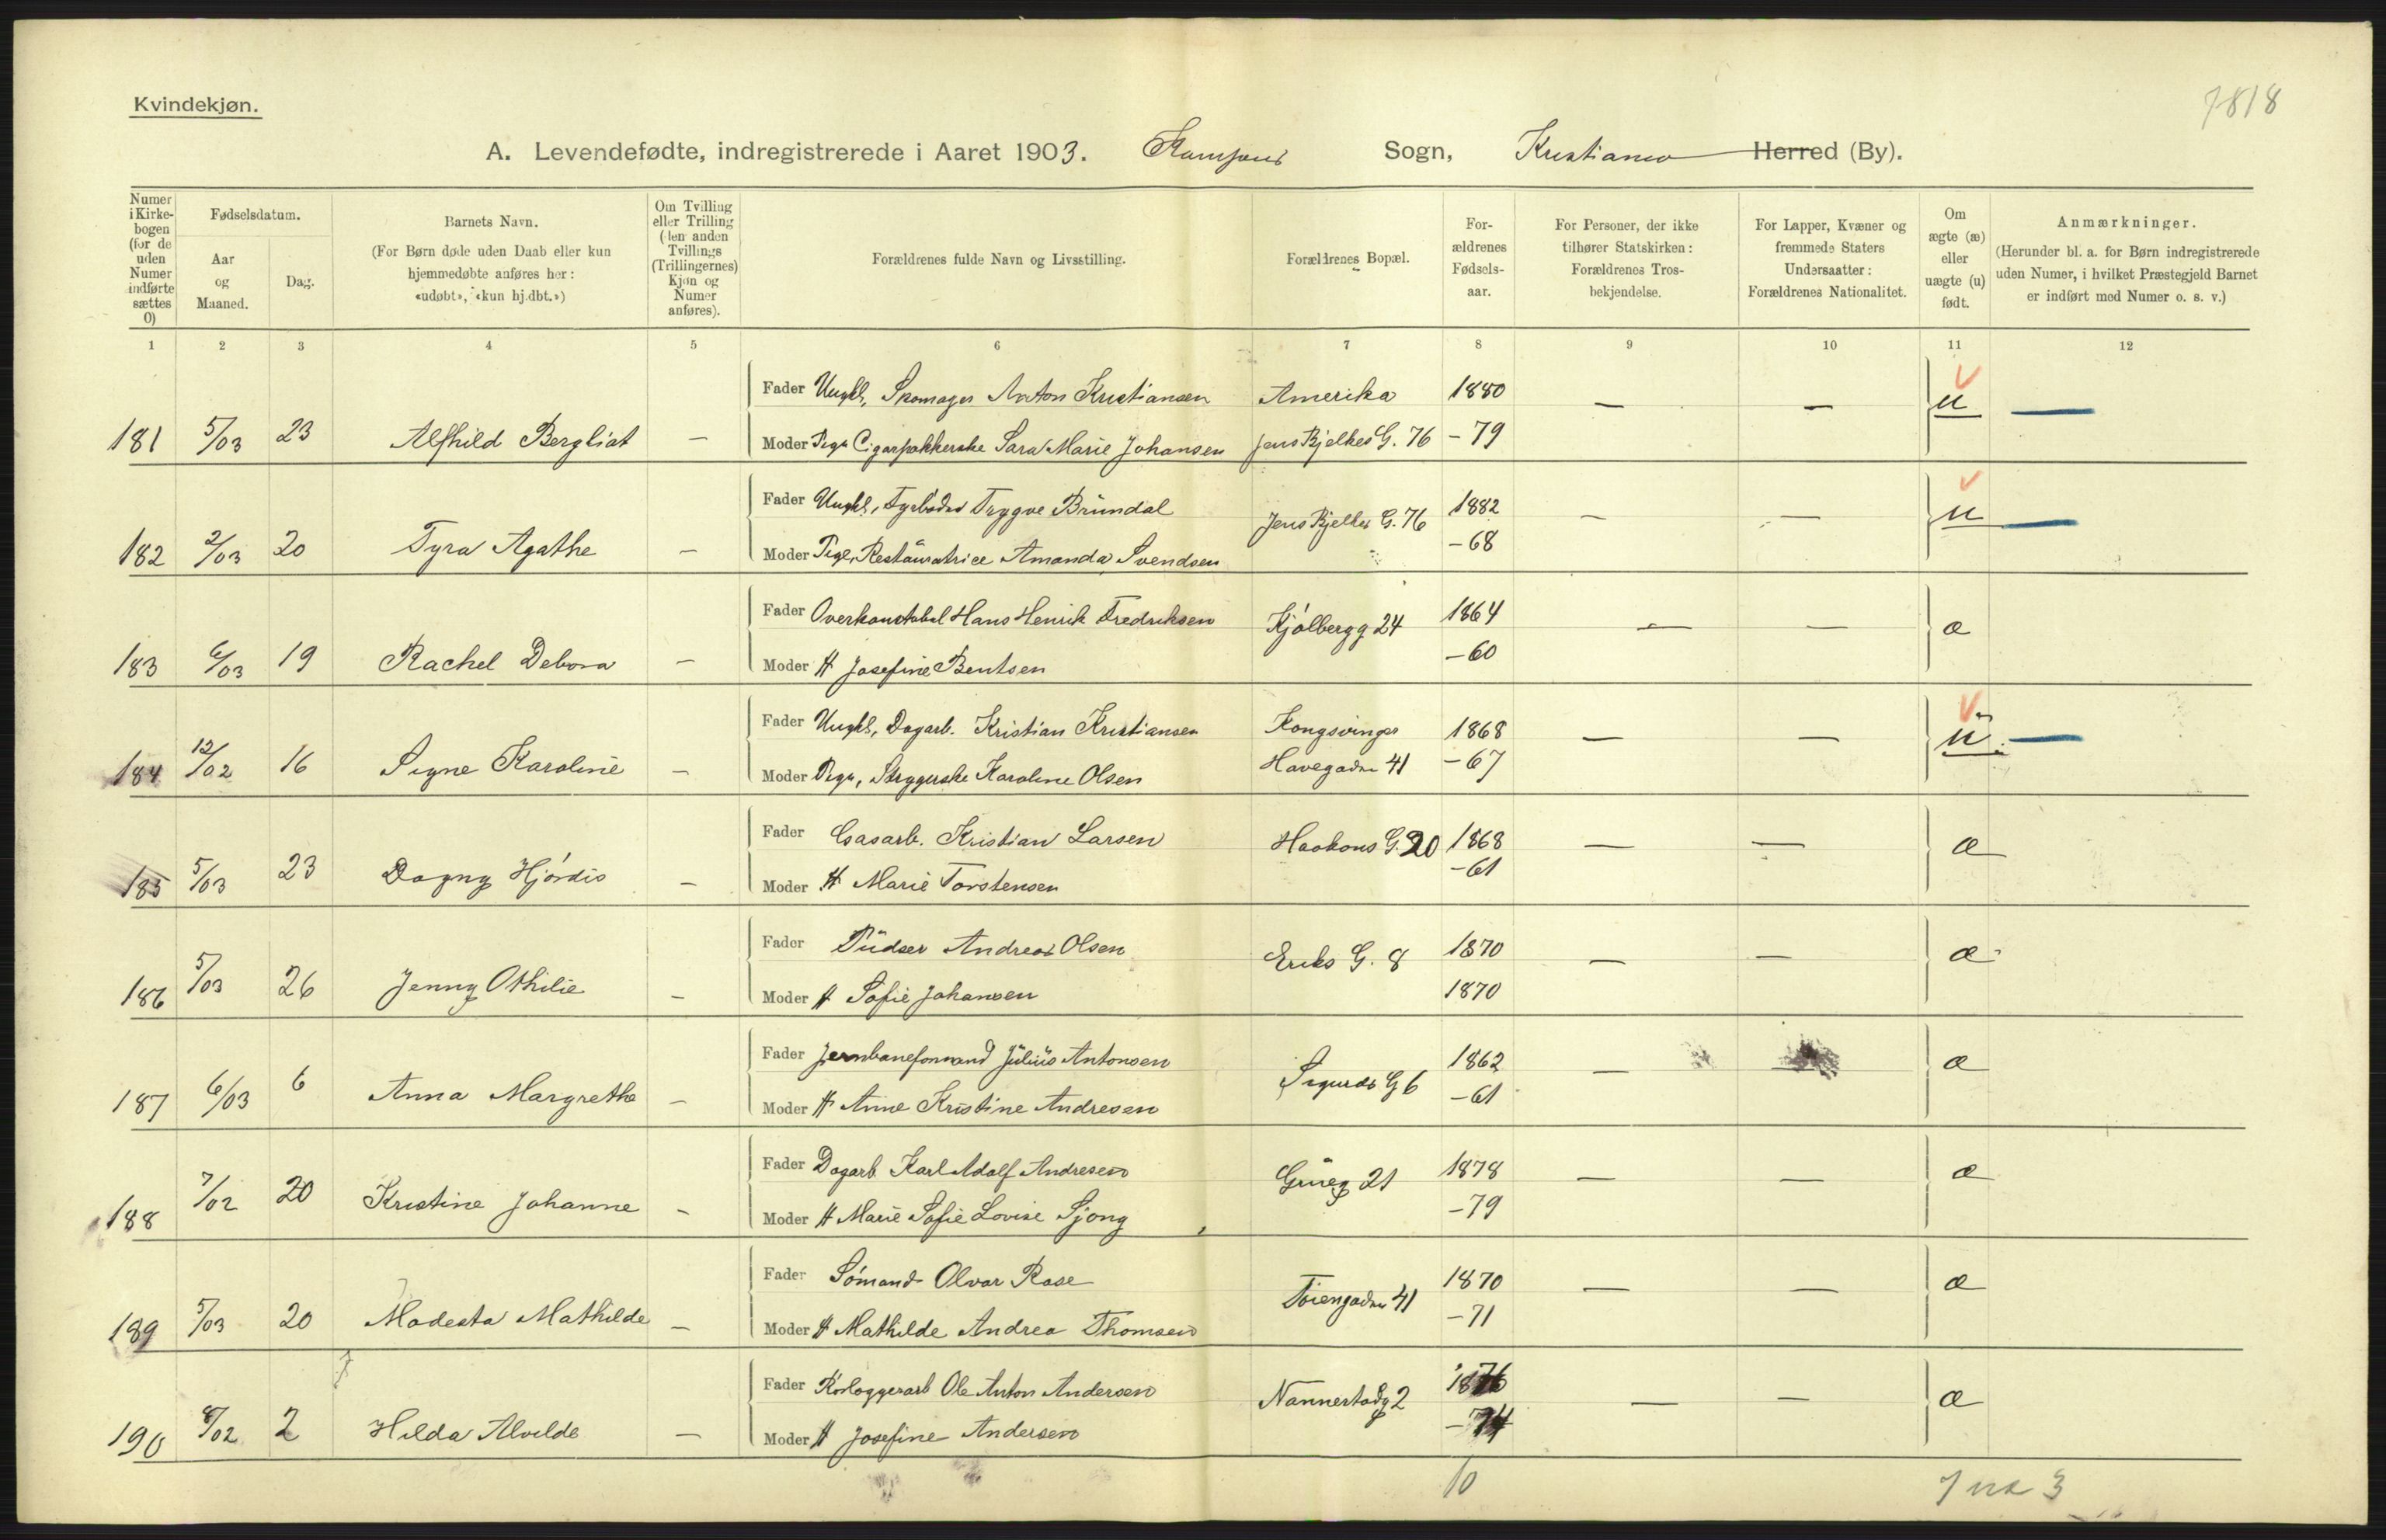 7818
Kvindekjøn.
A. Levendefødte, indregistrerede i Aaret 1903. Kampens Sogn, Kristiania Herred (By).
Numer i Kirkebogen (for de uden Numer indførte sættes 0)
Fødselsdatum.
Aar og Maaned.
Dag.
Barnets Navn.
(For Børn døde uden Daab eller kun hjemmedøbte anføres her: «udøbt», «kun hj.dbt.»)
Om Tvilling eller Trilling (den anden Tvillings (Trillingernes) Kjøn og Numer anføres).
Forældrenes fulde Navn og Livsstilling.
Forældrenes Bopæl.
Forældrenes Fødselsaar.
For Personer, der ikke tilhører Statskirken: Forældrenes Trosbekjendelse.
For Lapper, Kvæner og fremmede Staters Undersaatter: Forældrenes Nationalitet.
Om ægte (æ) eller uægte (u) født.
Anmærkninger.
(Herunder bl. a. for Børn indregistrerede uden Numer, i hvilket Præstegjeld Barnet er indført med Numer o. s. v.)
1 2 3 4 5 6 7 8 9 10 11 12
Fader Ungkl, Skomager Anton Kristiansen Amerika 1880 — — u
181 5/03 23 Alfhild Bergliot — Moder Pige Cigarpakkerske Sara Marie Johansen Jens Bjelkes G. 76 - 79
Fader Ungkl, Fyrbøder Trygve Brundal Jens Bjelkes G. 76 1882 — — u
182 2/03 20 Tyra Agathe — Moder Pige, Restauratrice Amanda Svendsen - 68
Fader Overkonstabel Hans Henrik Fredriksen Kjølbergg 24 1864 — — æ
183 6/03 19 Rachel Debora — Moder H Josefine Bentsen - 60
Fader Ungkl, Dagarb. Kristian Kristiansen Kongsvinger 1868 — — u
184 12/02 16 Signe Karoline — Moder Pige, Strygerske Karoline Olsen Havegaden 41 - 67
Fader Gasarb. Kristian Larsen Haakons G. 20 1868 — — æ
185 5/03 23 Dagny Hjørdis — Moder H Marie Torstensen - 61
Fader Pudser Andreas Olsen Eriks G. 8 1870 — — æ
186 5/03 26 Jenny Othilie — Moder H Sofie Johansen 1870
Fader Jernbaneformand Julius Antonsen Sigurds G 6 1862 — — æ
187 6/03 6 Anna Margrethe — Moder H Anne Kristine Andresen - 61
Fader Dagarb Karl Adolf Andresen Grüeg 21 1878 — — æ
188 7/02 20 Kristine Johanne — Moder H Marie Sofie Lovise Sjong - 79
Fader Sømand Olvar Rase Tøiengaden 41 1870 — — æ
189 5/03 20 Modesta Mathilde — Moder H Mathilde Andrea Thomsen - 71
Fader Ole Anton Andersen Nannestadg 2 1876 — — æ
190 8/02 2 Hilda Alvilde — Moder H Josefine Andersen - 74
10 7 3